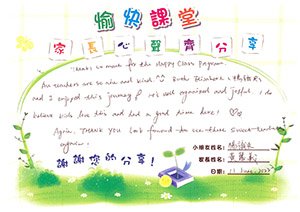 愉快課堂
家長心聲齊分享
Thanks so much for the Happy Class Program.
All teachers are so nice and kind ♡♡ Both Elizabeth (楊
and I enjoyed this journey & it's well organized and joyful. I do
believe kids love this and had a good time here! ♡
Again, Thank you look forward to see these sweet teachers
again!
謝謝您的分享!
小朋友姓名:
家長姓名: 黃
日期: 11 June, 2023